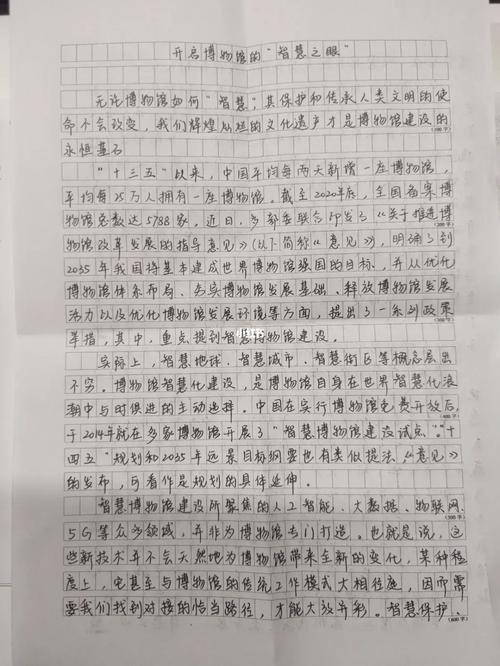 开启博物馆的“智慧之眼”
无论博物馆如何“智慧”，其保护和传承人类文明的使
命不会改变，我们辉煌灿烂的文化遗产才是博物馆建设的
永恒基石
“十三五”以来，中国平均每两天新增一座博物馆，
平均每25万人拥有一座博物馆。截至2020年底，全国备案博
物馆总数达5788家。近日，多部委联合印发了《关于推进博
物馆改革发展的指导意见》（以下简称《意见》），明确了到
2035年我国将基本建成世界博物馆强国的目标，并从优化
博物馆体系布局、夯实博物馆发展基础、释放博物馆发展
活力以及优化博物馆发展环境等方面，提出了一系列政策
举措，其中，重点提到智慧博物馆建设。
实际上，智慧地球、智慧城市、智慧街区等概念层出
不穷。博物馆智慧化建设，是博物馆自身在世界智慧化浪
潮中与时俱进的主动选择。中国在实行博物馆免费开放后，
于2014年就在多家博物馆开展了“智慧博物馆建设试点”。“十
四五”规划和2035年远景目标纲要也有类似提法，《意见》
的发布，可看作是规划的具体延伸。
智慧博物馆建设所聚焦的人工智能、大数据、物联网、
5G等众多领域，并非为博物馆专门打造。也就是说，这
些新技术并不会天然地为博物馆带来全新的变化，某种程
度上，它甚至与博物馆的传统工作模式大相径庭，因而需
要我们找到对接的恰当路径，才能大放异彩。智慧保护、